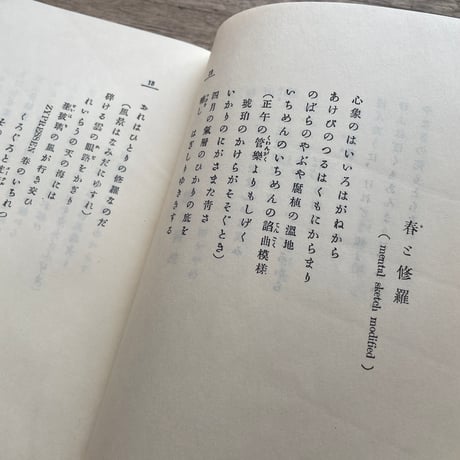 春と修羅
(mental sketch modified)
心象のはいいろはがねから
あけびのつるはくもにからまり
のばらのやぶや腐植の濕地
いちめんのいちめんの諂曲模様
(正午の管樂よりもしげく
琥珀のかけらがそそぐとき)
いかりのにがさまた青さ
四月の氣層のひかりの底を
唾し はぎしりゆききする
おれはひとりの修羅なのだ
(風景はなみだにゆすれ)
碎ける雲の眼路をかぎり
れいらうの天の海には
聖玻璃の風が行き交ひ
ZYPRESSEN 春のいちれつ
くろぐろと